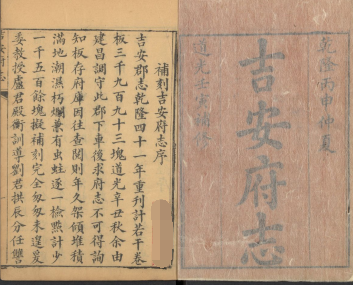 乾隆丙申仲夏
吉安府志
道光壬寅補修
補刻吉安府志序
吉安郡志乾隆四十一年重刊計若干卷
板三千九百九十三塊道光辛丑秋余由
建昌調守此郡下車後求府志不可得詢
知板存府庫因往查閱則年久架傾堆積
滿地潮濕朽爛兼有虫蛀逐一檢點計少
一千五百餘塊擬補刻完全匆匆未遑爰
委教授盧君殿衡訓導劉君拱辰分任讐
吉安府志